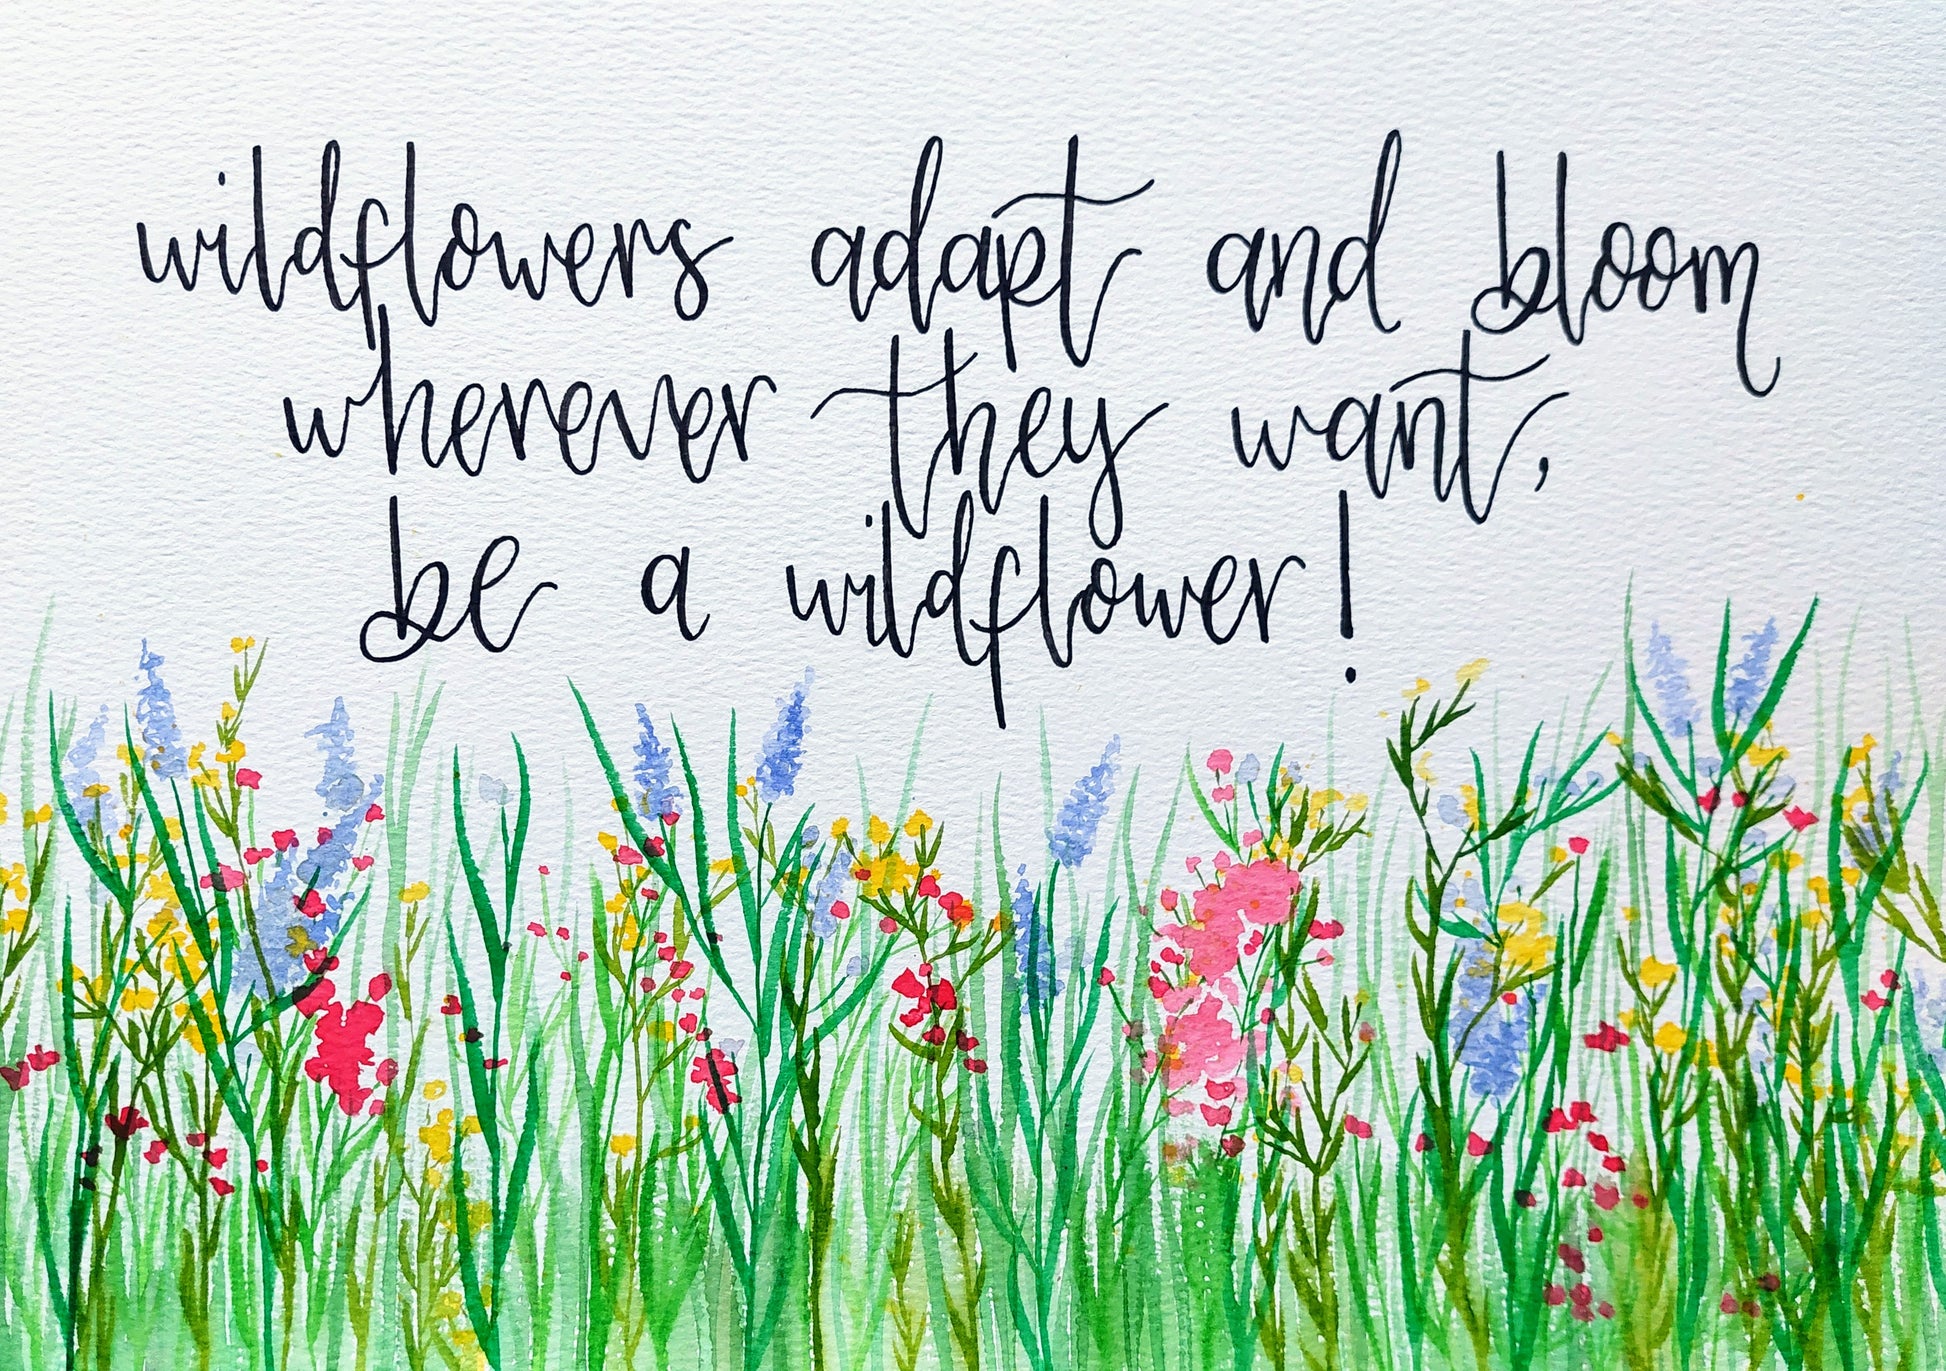 wildflowers adapt and bloom
wherever they want,
be a wildflower!